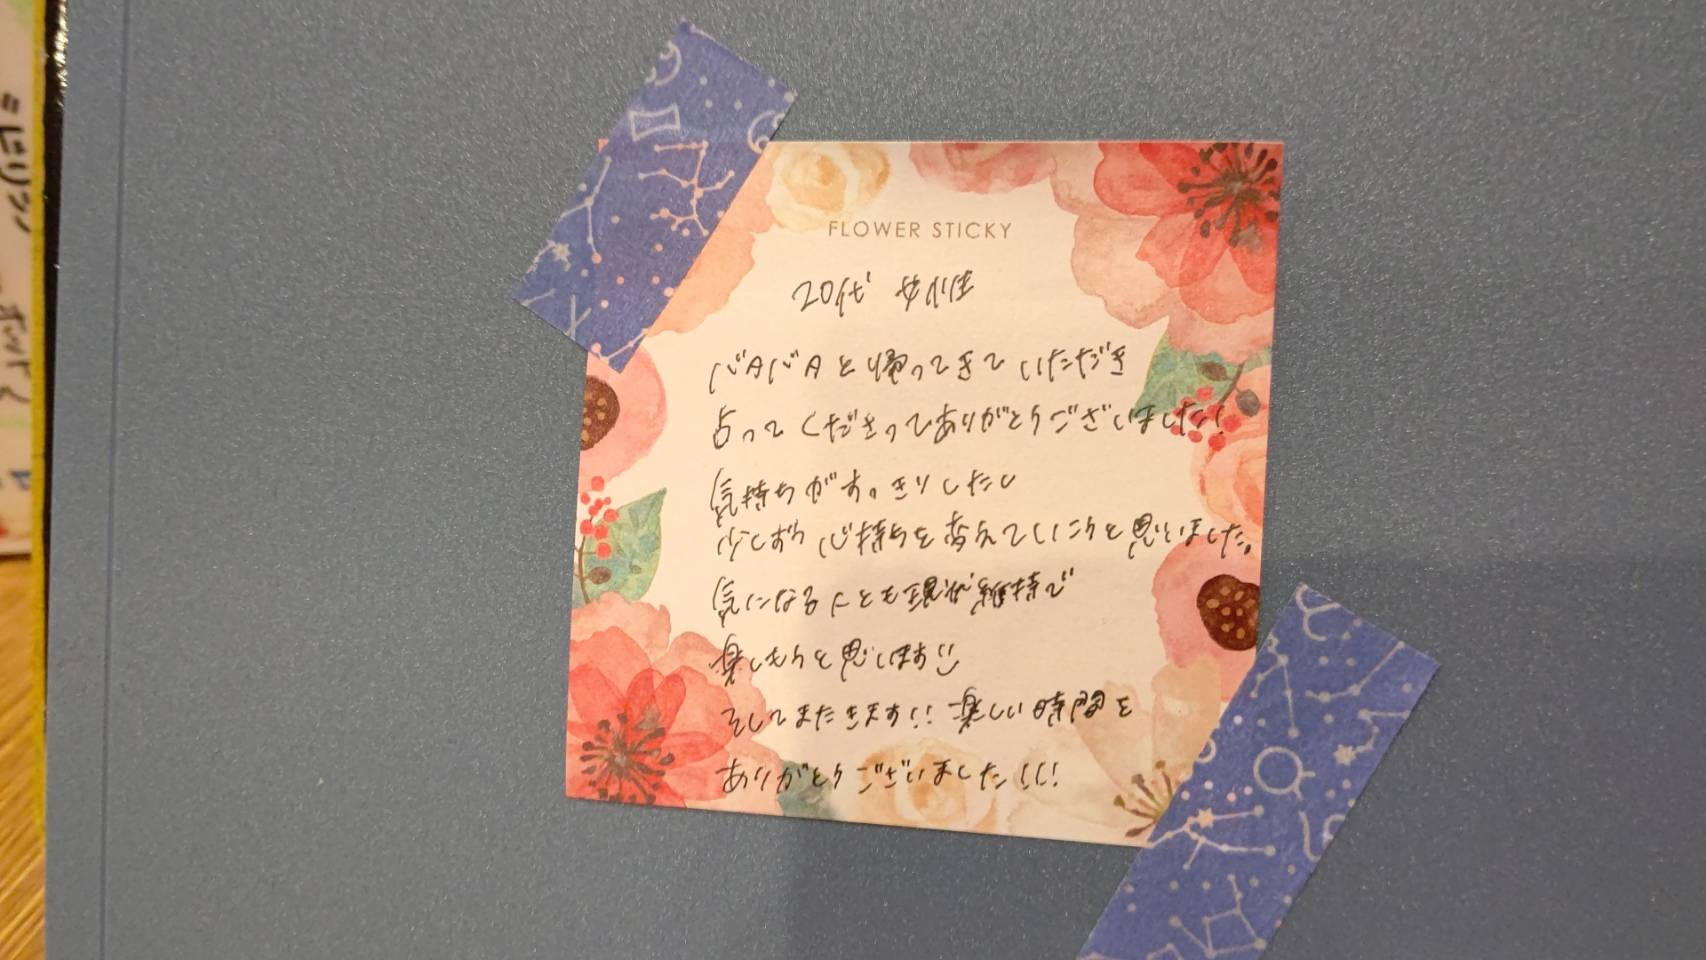 FLOWER STICKY
20代 女性
バAバAと帰ってきていただき
占ってくださってありがとうございました!
気持ちがすっきりしたし
少しずつ心持ちを変えていこうと思いました。
気になる人とも現状維持で
楽しもうと思います
そしてまたきます!! 楽しい時間を
ありがとうございました!!!